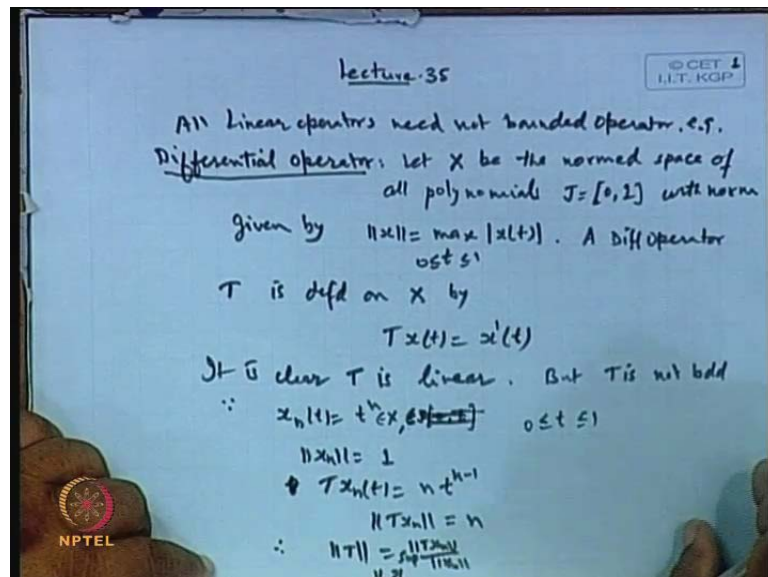 Lecture-35
© CET 1
I.I.T. KGP
All Linear operators need not bounded operator. e.g.
Differential operator: Let X be the normed space of
all polynomials J = [0,1] with norm
given by ||x|| = max |x(t)|. A Diff operator
0≤t≤1
T is defd on X by
T x(t) = x'(t)
It is clear T is linear. But T is not bdd
∵ xₙ(t) = tⁿ ∈ X, 0 ≤ t ≤ 1
||xₙ|| = 1
T xₙ(t) = n tⁿ⁻¹
||T xₙ|| = n
∴ ||T|| = sup ||Txₙ|| / ||xₙ||
NPTEL